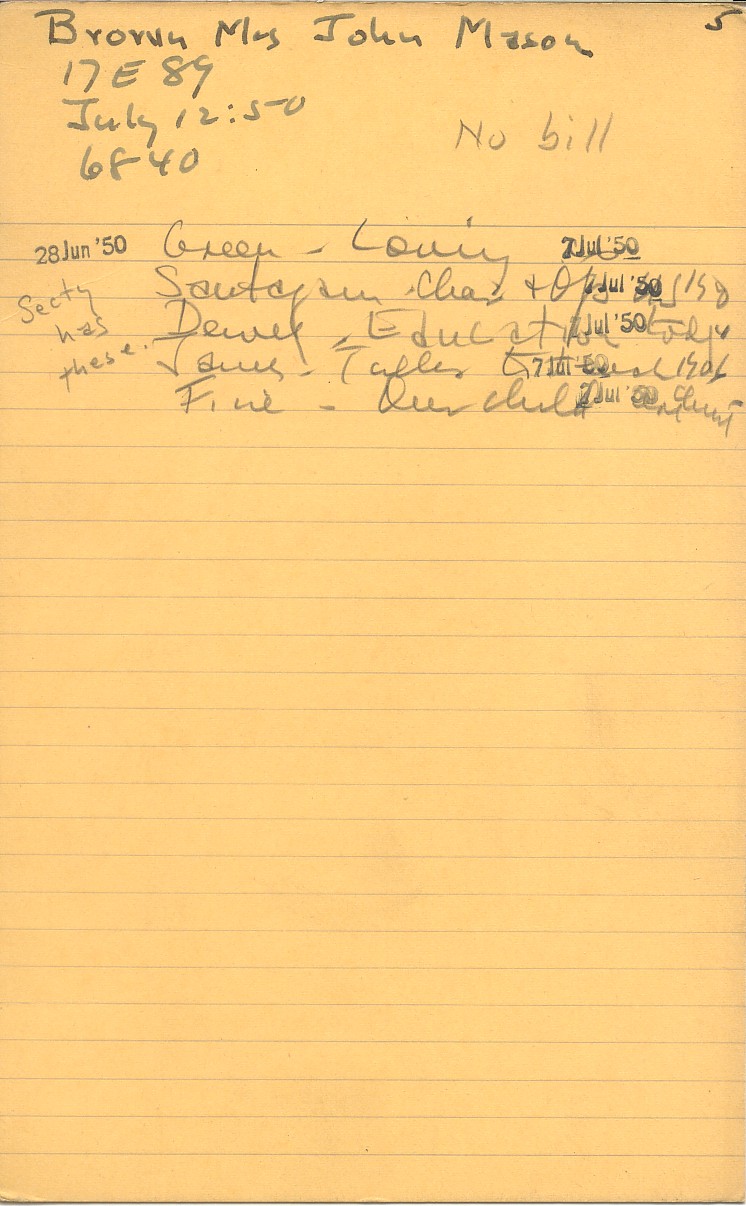 Brown Mrs John Mason 5
17 E 89
July 12:50
6840
No bill
28 Jun '50 Green - Loving 7 Jul '50
Santayana Char & Op Jul '50
Secty has these.
Dewey - Education Today 7 Jul '50
James - Talks to Teach 1906 7 Jul '50
Fine - Our Children 7 Jul '50